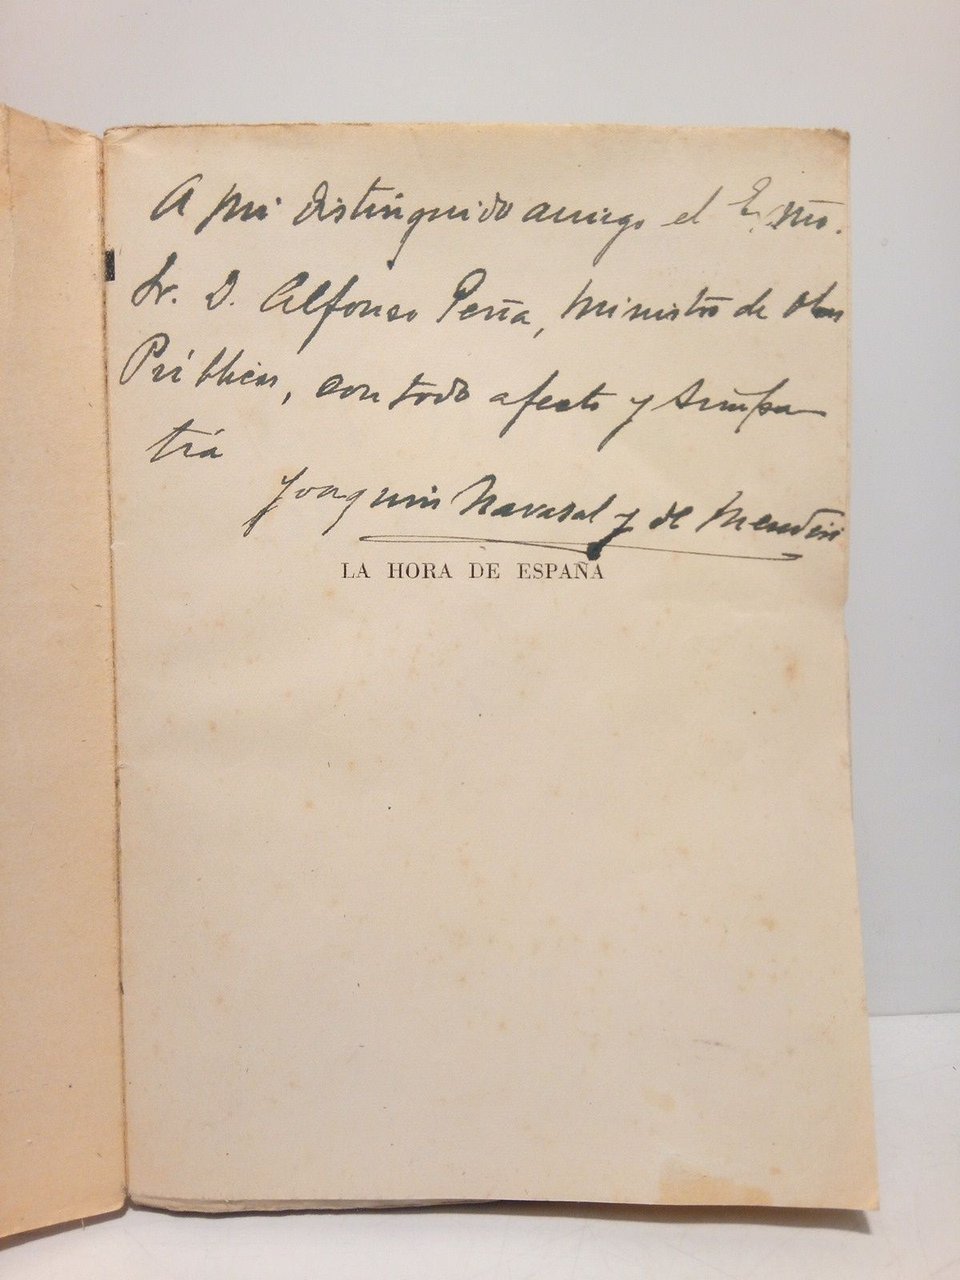 A mi distinguido amigo el Exmo.
Sr. D. Alfonso Peña, Ministro de Obras
Públicas, con todo afecto y simpa-
tía
Joaquín Navasal y de Mendiri
LA HORA DE ESPAÑA